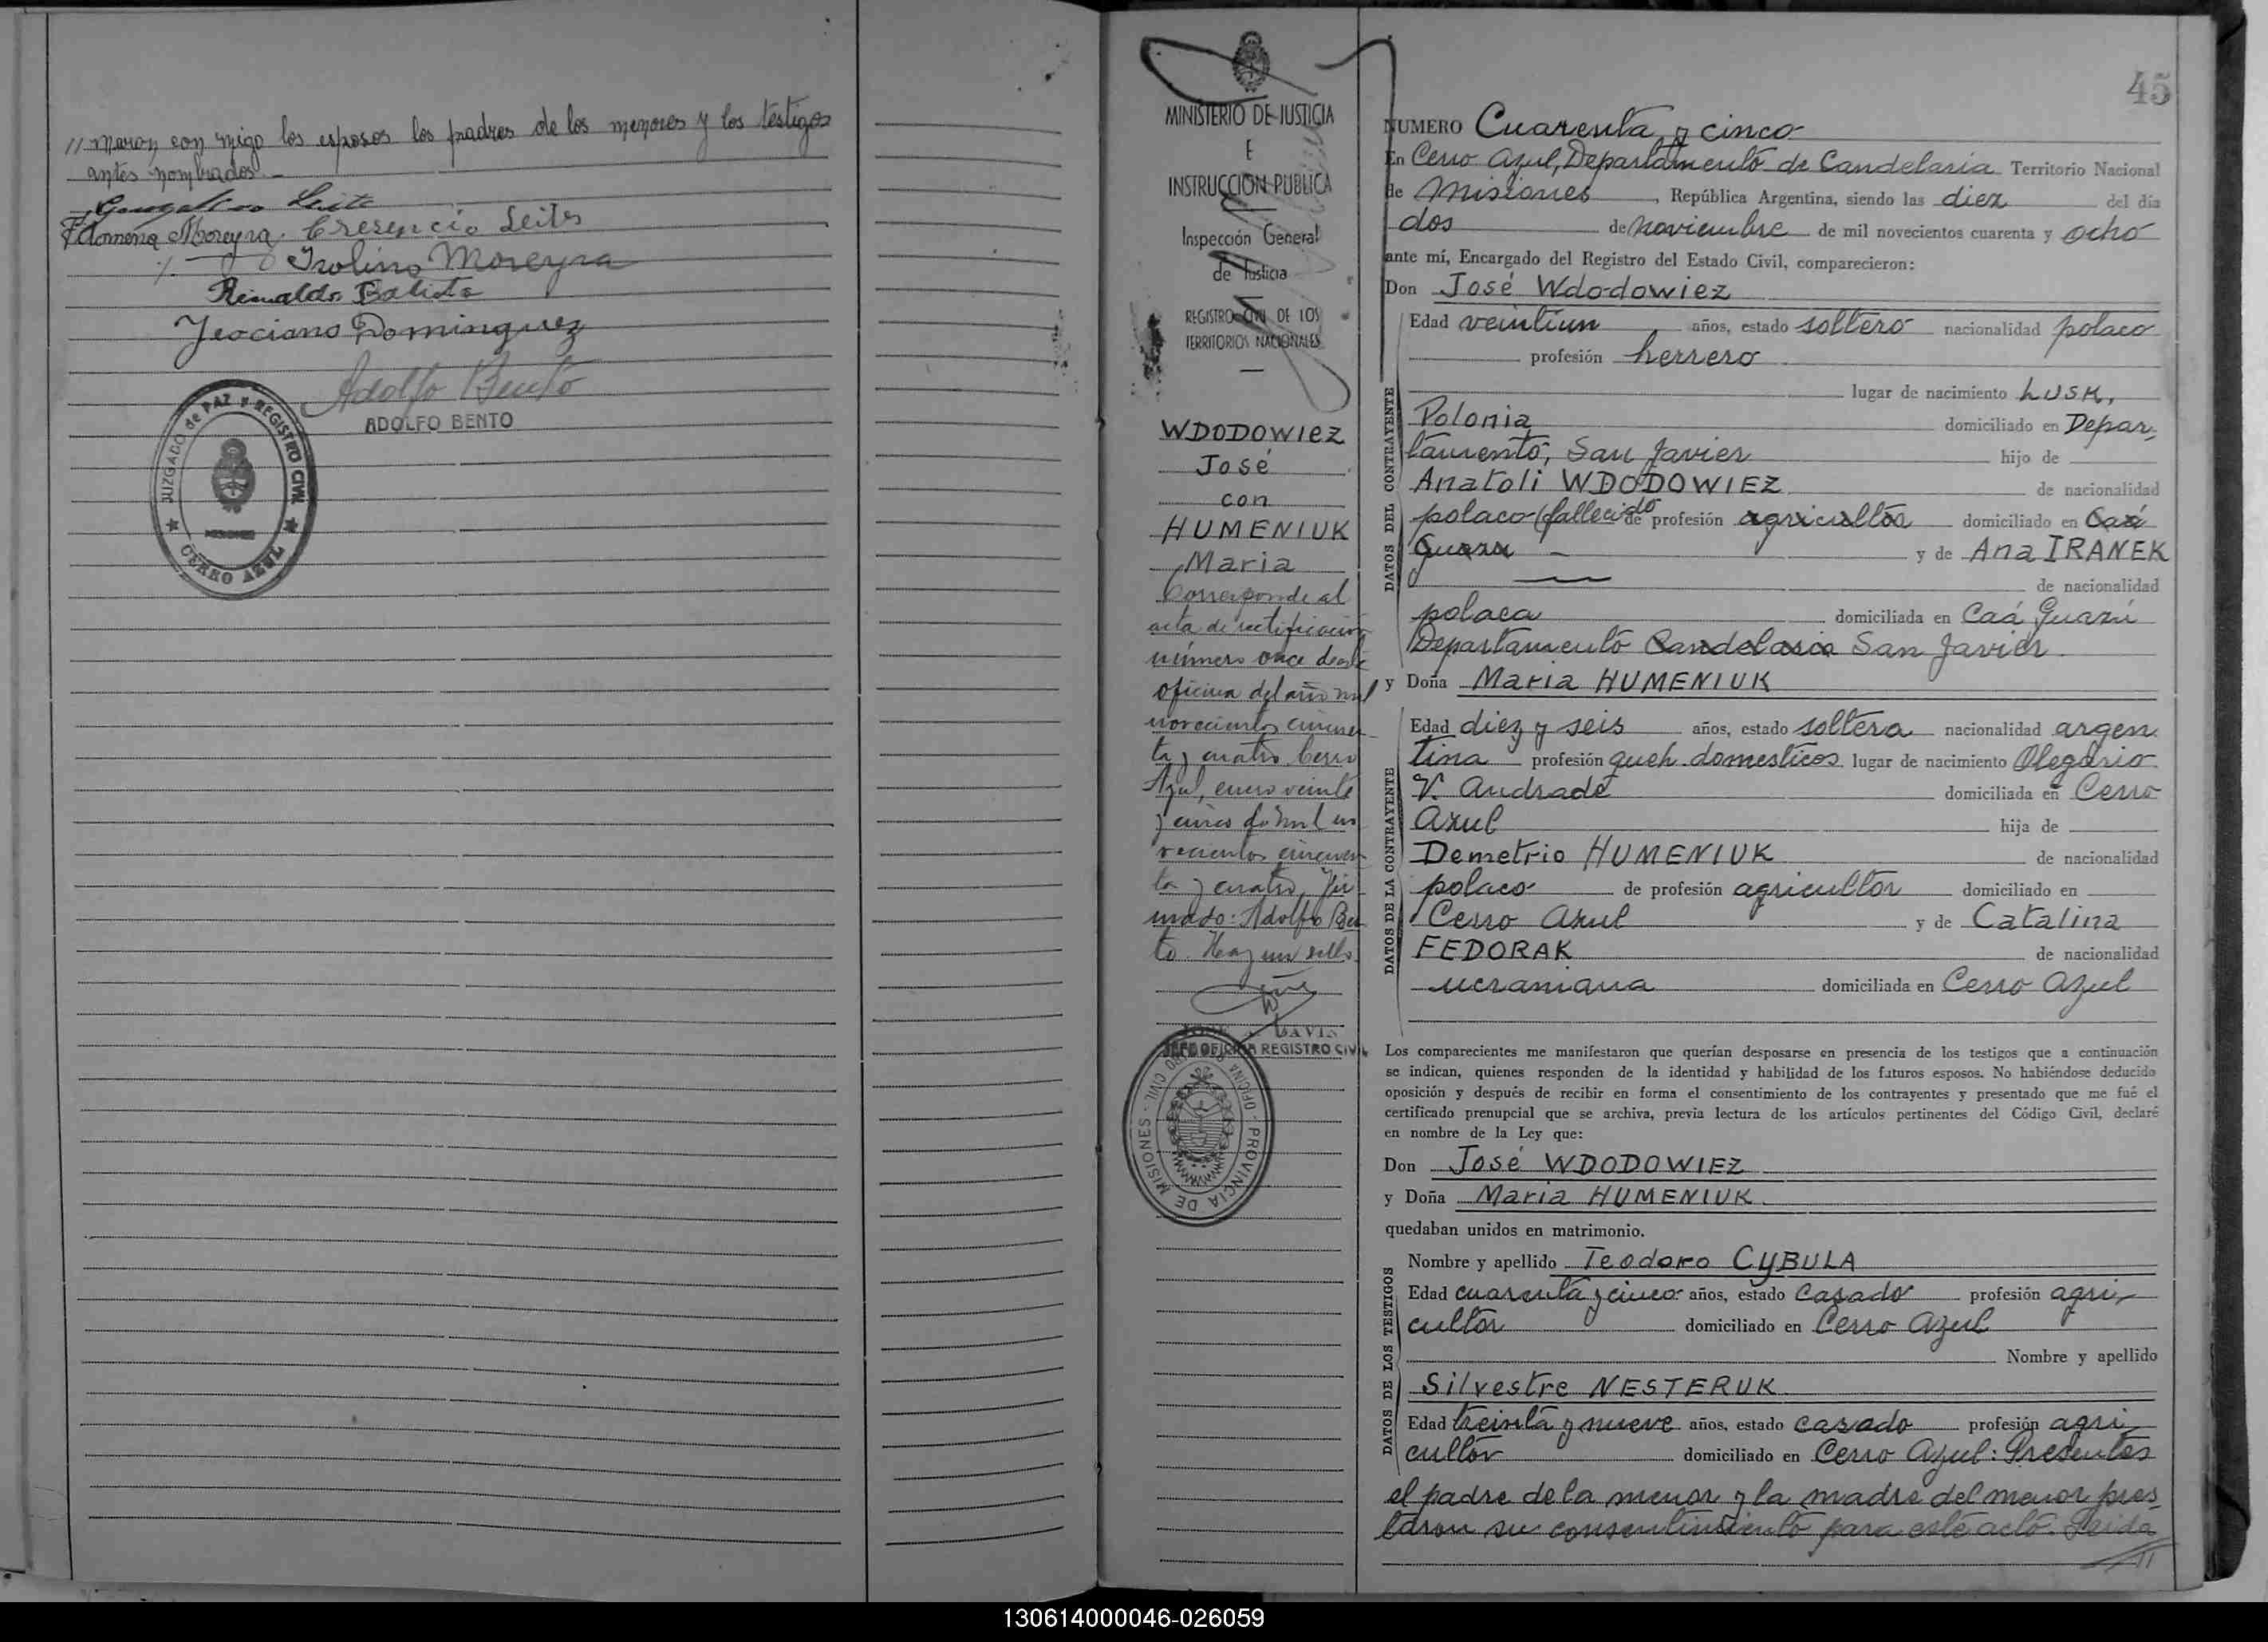 // maron con migo los esposos los padres de los menores y los testigos
antes nombrados.-
Leite
Filomena Moreyra. Cresencio Leites
Isolino Moreyra
Reinaldo Batista
Dominguez
Adolfo Bento
ADOLFO BENTO
JUZGADO de PAZ y REGISTRO CIVIL
MISIONES
★ CERRO AZUL ★
MINISTERIO DE JUSTICIA
E
INSTRUCCION PUBLICA
Inspección General
de Justicia
REGISTRO CIVIL DE LOS
TERRITORIOS NACIONALES
WDODOWIEZ
José
con
HUMENIUK
Maria
Corresponde al
acta de rectificacion
número once de
oficina del año mil
novecientos cincuen
ta y cuatro. Cerro
Azul, enero veinte
y cinco de mil no
vecientos cincuen
ta y cuatro. Fir
mado: Adolfo Ben
to. Hay un sello.
JEFE OFICINA REGISTRO CIVIL
OFICINA REGISTRO CIVIL - PROVINCIA DE MISIONES
45
NUMERO Cuarenta y cinco
En Cerro Azul, Departamento de Candelaria Territorio Nacional
de Misiones, República Argentina, siendo las diez del día
dos de noviembre de mil novecientos cuarenta y ocho
ante mí, Encargado del Registro del Estado Civil, comparecieron:
Don José Wdodowiez
DATOS DEL CONTRAYENTE
Edad veintiun años, estado soltero nacionalidad polaco
profesión herrero
lugar de nacimiento LUSK,
Polonia domiciliado en Depar-
tamento, San Javier hijo de
Anatoli WDODOWIEZ de nacionalidad
polaco (fallecido de profesión agricultor domiciliado en Caá
Guazu - y de Ana IRANEK
de nacionalidad
polaca domiciliada en Caá Guazú
Departamento Candelaria San Javier.
y Doña Maria HUMENIUK
DATOS DE LA CONTRAYENTE
Edad diez y seis años, estado soltera nacionalidad argen
tina profesión queh. domesticos lugar de nacimiento Olegario
V. Andrade domiciliada en Cerro
Azul hija de
Demetrio HUMENIUK de nacionalidad
polaco de profesión agricultor domiciliado en
Cerro Azul y de Catalina
FEDORAK de nacionalidad
ucraniana domiciliada en Cerro Azul
Los comparecientes me manifestaron que querían desposarse en presencia de los testigos que a continuación
se indican, quienes responden de la identidad y habilidad de los futuros esposos. No habiéndose deducido
oposición y después de recibir en forma el consentimiento de los contrayentes y presentado que me fué el
certificado prenupcial que se archiva, previa lectura de los artículos pertinentes del Código Civil, declaré
en nombre de la Ley que:
Don José WDODOWIEZ
y Doña Maria HUMENIUK.
quedaban unidos en matrimonio.
DATOS DE LOS TESTIGOS
Nombre y apellido Teodoro CYBULA
Edad cuarenta y cinco años, estado casado profesión agri-
cultor domiciliado en Cerro Azul
Nombre y apellido
Silvestre NESTERUK
Edad treinta y nueve años, estado casado profesión agri
cultor domiciliado en Cerro Azul: Presentes
el padre de la menor y la madre del menor pres
taron su consentimiento para este acto. Leida
//
130614000046-026059